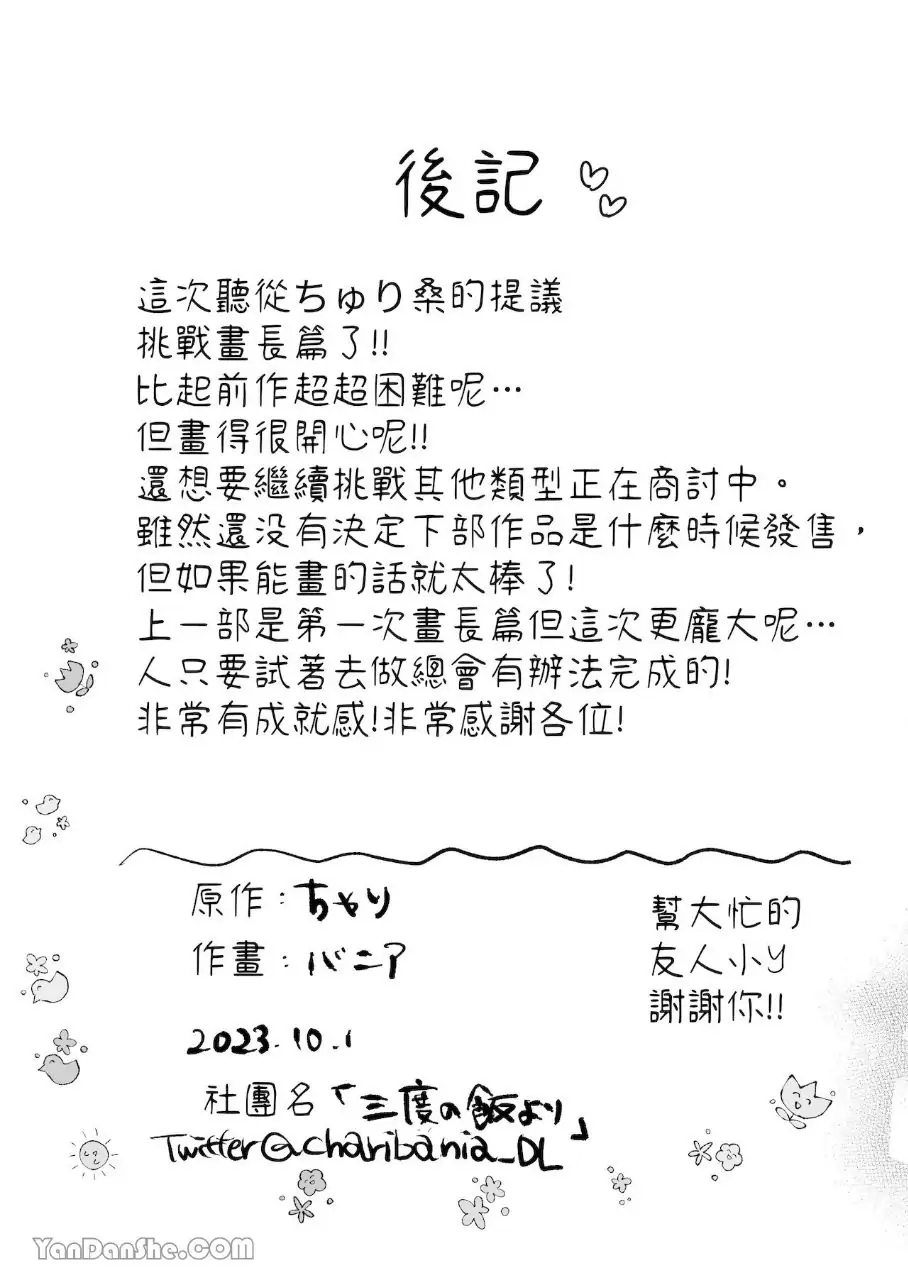 後記
這次聽從ちゅり桑的提議
挑戰畫長篇了!!
比起前作超超困難呢…
但畫得很開心呢!!
還想要繼續挑戰其他類型正在商討中。
雖然還没有決定下部作品是什麼時候發售，
但如果能畫的話就太棒了!
上一部是第一次畫長篇但這次更龐大呢…
人只要試著去做總會有辦法完成的!
非常有成就感!非常感謝各位!
原作:ちゃり
作畫:バニア
幫大忙的
友人小Y
謝謝你!!
2023.10.1
社團名「三度の飯より」
Twitter@charibania_DL
YanDanShe.COM